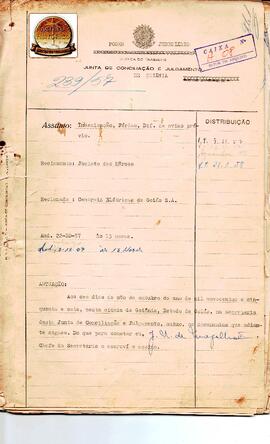 PODER JUDICIÁRIO
JUSTIÇA DO TRABALHO
CAIXA
JUNTA DE CONCILIAÇÃO E JULGAMENTO
DE GOIÂNIA
239/57
Assunto: Indenização, Férias, Dif. de aviso pré-
vio.
DISTRIBUIÇÃO
Reclamante: Jacinto das Mêrces
Reclamada : Centrais Elétricas de Goiás S.A.
Aud. 22-10-57 às 13 horas.
AUTUAÇÃO:
Aos dez dias do mês de outubro do ano de mil novecentos e cin-
quenta e sete, nesta cidade de Goiânia, Estado de Goiás, na secretaria
desta Junta de Conciliação e Julgamento, autuo, os documentos que adian-
te seguem. Do que para constar eu,
Chefe da Secretaria o escreví e assino.